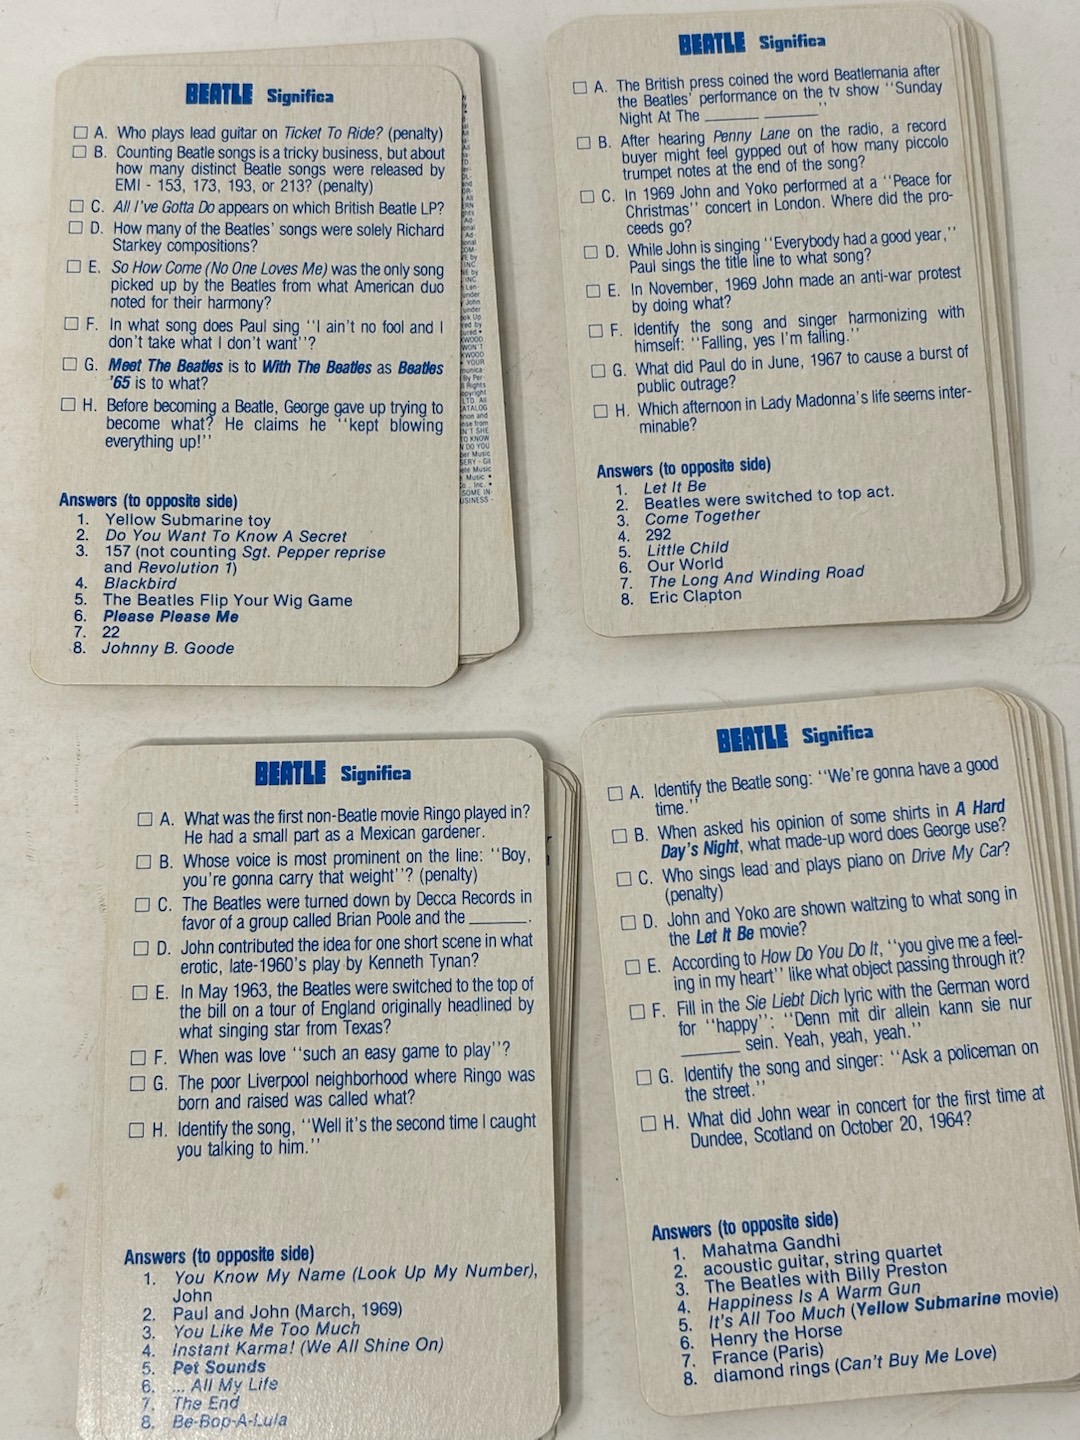 BEATLE Significa
□ A. Who plays lead guitar on Ticket To Ride? (penalty)
□ B. Counting Beatle songs is a tricky business, but about
how many distinct Beatle songs were released by
EMI - 153, 173, 193, or 213? (penalty)
□ C. All I've Gotta Do appears on which British Beatle LP?
□ D. How many of the Beatles' songs were solely Richard
Starkey compositions?
□ E. So How Come (No One Loves Me) was the only song
picked up by the Beatles from what American duo
noted for their harmony?
□ F. In what song does Paul sing ''I ain't no fool and I
don't take what I don't want''?
□ G. Meet The Beatles is to With The Beatles as Beatles
'65 is to what?
□ H. Before becoming a Beatle, George gave up trying to
become what? He claims he ''kept blowing
everything up!''
Answers (to opposite side)
1. Yellow Submarine toy
2. Do You Want To Know A Secret
3. 157 (not counting Sgt. Pepper reprise
and Revolution 1)
4. Blackbird
5. The Beatles Flip Your Wig Game
6. Please Please Me
7. 22
8. Johnny B. Goode
BEATLE Significa
□ A. The British press coined the word Beatlemania after
the Beatles' performance on the tv show ''Sunday
Night At The ______ ______''
□ B. After hearing Penny Lane on the radio, a record
buyer might feel gypped out of how many piccolo
trumpet notes at the end of the song?
□ C. In 1969 John and Yoko performed at a ''Peace for
Christmas'' concert in London. Where did the pro-
ceeds go?
□ D. While John is singing ''Everybody had a good year,''
Paul sings the title line to what song?
□ E. In November, 1969 John made an anti-war protest
by doing what?
□ F. Identify the song and singer harmonizing with
himself: ''Falling, yes I'm falling.''
□ G. What did Paul do in June, 1967 to cause a burst of
public outrage?
□ H. Which afternoon in Lady Madonna's life seems inter-
minable?
Answers (to opposite side)
1. Let It Be
2. Beatles were switched to top act.
3. Come Together
4. 292
5. Little Child
6. Our World
7. The Long And Winding Road
8. Eric Clapton
BEATLE Significa
□ A. What was the first non-Beatle movie Ringo played in?
He had a small part as a Mexican gardener.
□ B. Whose voice is most prominent on the line: ''Boy,
you're gonna carry that weight''? (penalty)
□ C. The Beatles were turned down by Decca Records in
favor of a group called Brian Poole and the ______.
□ D. John contributed the idea for one short scene in what
erotic, late-1960's play by Kenneth Tynan?
□ E. In May 1963, the Beatles were switched to the top of
the bill on a tour of England originally headlined by
what singing star from Texas?
□ F. When was love ''such an easy game to play''?
□ G. The poor Liverpool neighborhood where Ringo was
born and raised was called what?
□ H. Identify the song, ''Well it's the second time I caught
you talking to him.''
Answers (to opposite side)
1. You Know My Name (Look Up My Number),
John
2. Paul and John (March, 1969)
3. You Like Me Too Much
4. Instant Karma! (We All Shine On)
5. Pet Sounds
6. ... All My Life
7. The End
8. Be-Bop-A-Lula
BEATLE Significa
□ A. Identify the Beatle song: ''We're gonna have a good
time.''
□ B. When asked his opinion of some shirts in A Hard
Day's Night, what made-up word does George use?
□ C. Who sings lead and plays piano on Drive My Car?
(penalty)
□ D. John and Yoko are shown waltzing to what song in
the Let It Be movie?
□ E. According to How Do You Do It, ''you give me a feel-
ing in my heart'' like what object passing through it?
□ F. Fill in the Sie Liebt Dich lyric with the German word
for ''happy'': ''Denn mit dir allein kann sie nur
______ sein. Yeah, yeah, yeah.''
□ G. Identify the song and singer: ''Ask a policeman on
the street.''
□ H. What did John wear in concert for the first time at
Dundee, Scotland on October 20, 1964?
Answers (to opposite side)
1. Mahatma Gandhi
2. acoustic guitar, string quartet
3. The Beatles with Billy Preston
4. Happiness Is A Warm Gun
5. It's All Too Much (Yellow Submarine movie)
6. Henry the Horse
7. France (Paris)
8. diamond rings (Can't Buy Me Love)